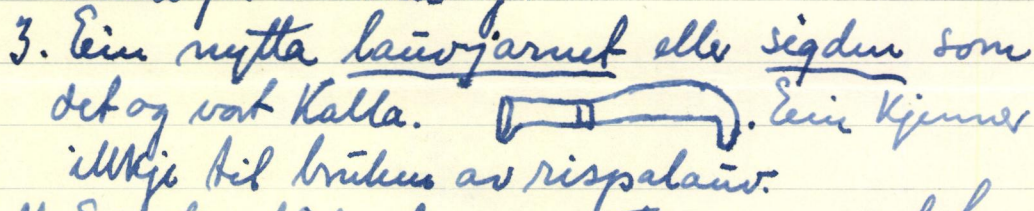 3. Ein nytta lauvjarnet eller sigden som
det og vart kalla. Ein kjenner
ikkje til bruken av rispalauv.